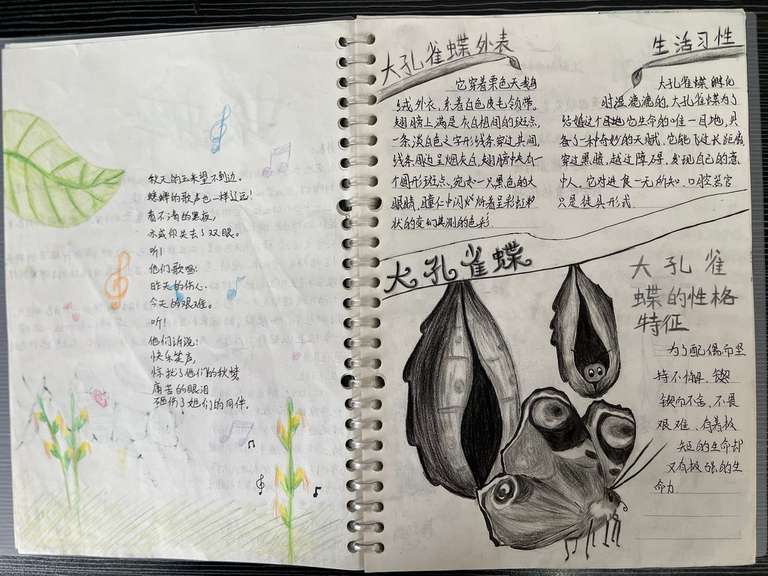 秋天的玉米望不到边。
蟋蟀的歌声也一样辽远！
看不清的黑夜，
亦或你失去了双眼。
听！
他们歌唱：
昨天的伤心，
今天的艰难。
听！
他们诉说：
快乐笑声，
惊扰了他们的秋梦
痛苦的眼泪
砸伤了她们的同伴。
大孔雀蝶外表
它穿着栗色天鹅
绒外衣，系着白色皮毛领带，
翅膀上满是灰白相间的斑点，
一条淡白色之字形线条穿过其间，
线条周边呈烟灰白，翅膀中央有一
个圆形斑点，宛如一只黑色的大
眼睛，瞳仁中闪烁所着呈彩虹和
状的变幻莫测的色彩
生活习性
大孔雀蝶孵化
时湿漉漉的，大孔雀蝶为了
结婚这个目地它生命的唯一目地，具
备了一种奇妙的天赋，它能飞过长距离，
穿过黑暗，越过障碍，发现自己的意
中人，它对进食一无所知，口腔器官
只是徒具形式
大孔雀蝶
大孔雀
蝶的性格
特征
为了配偶而坚
持不懈、锲
锲而不舍、不畏
艰难、有着极
短的生命却
又有极强的生
命力